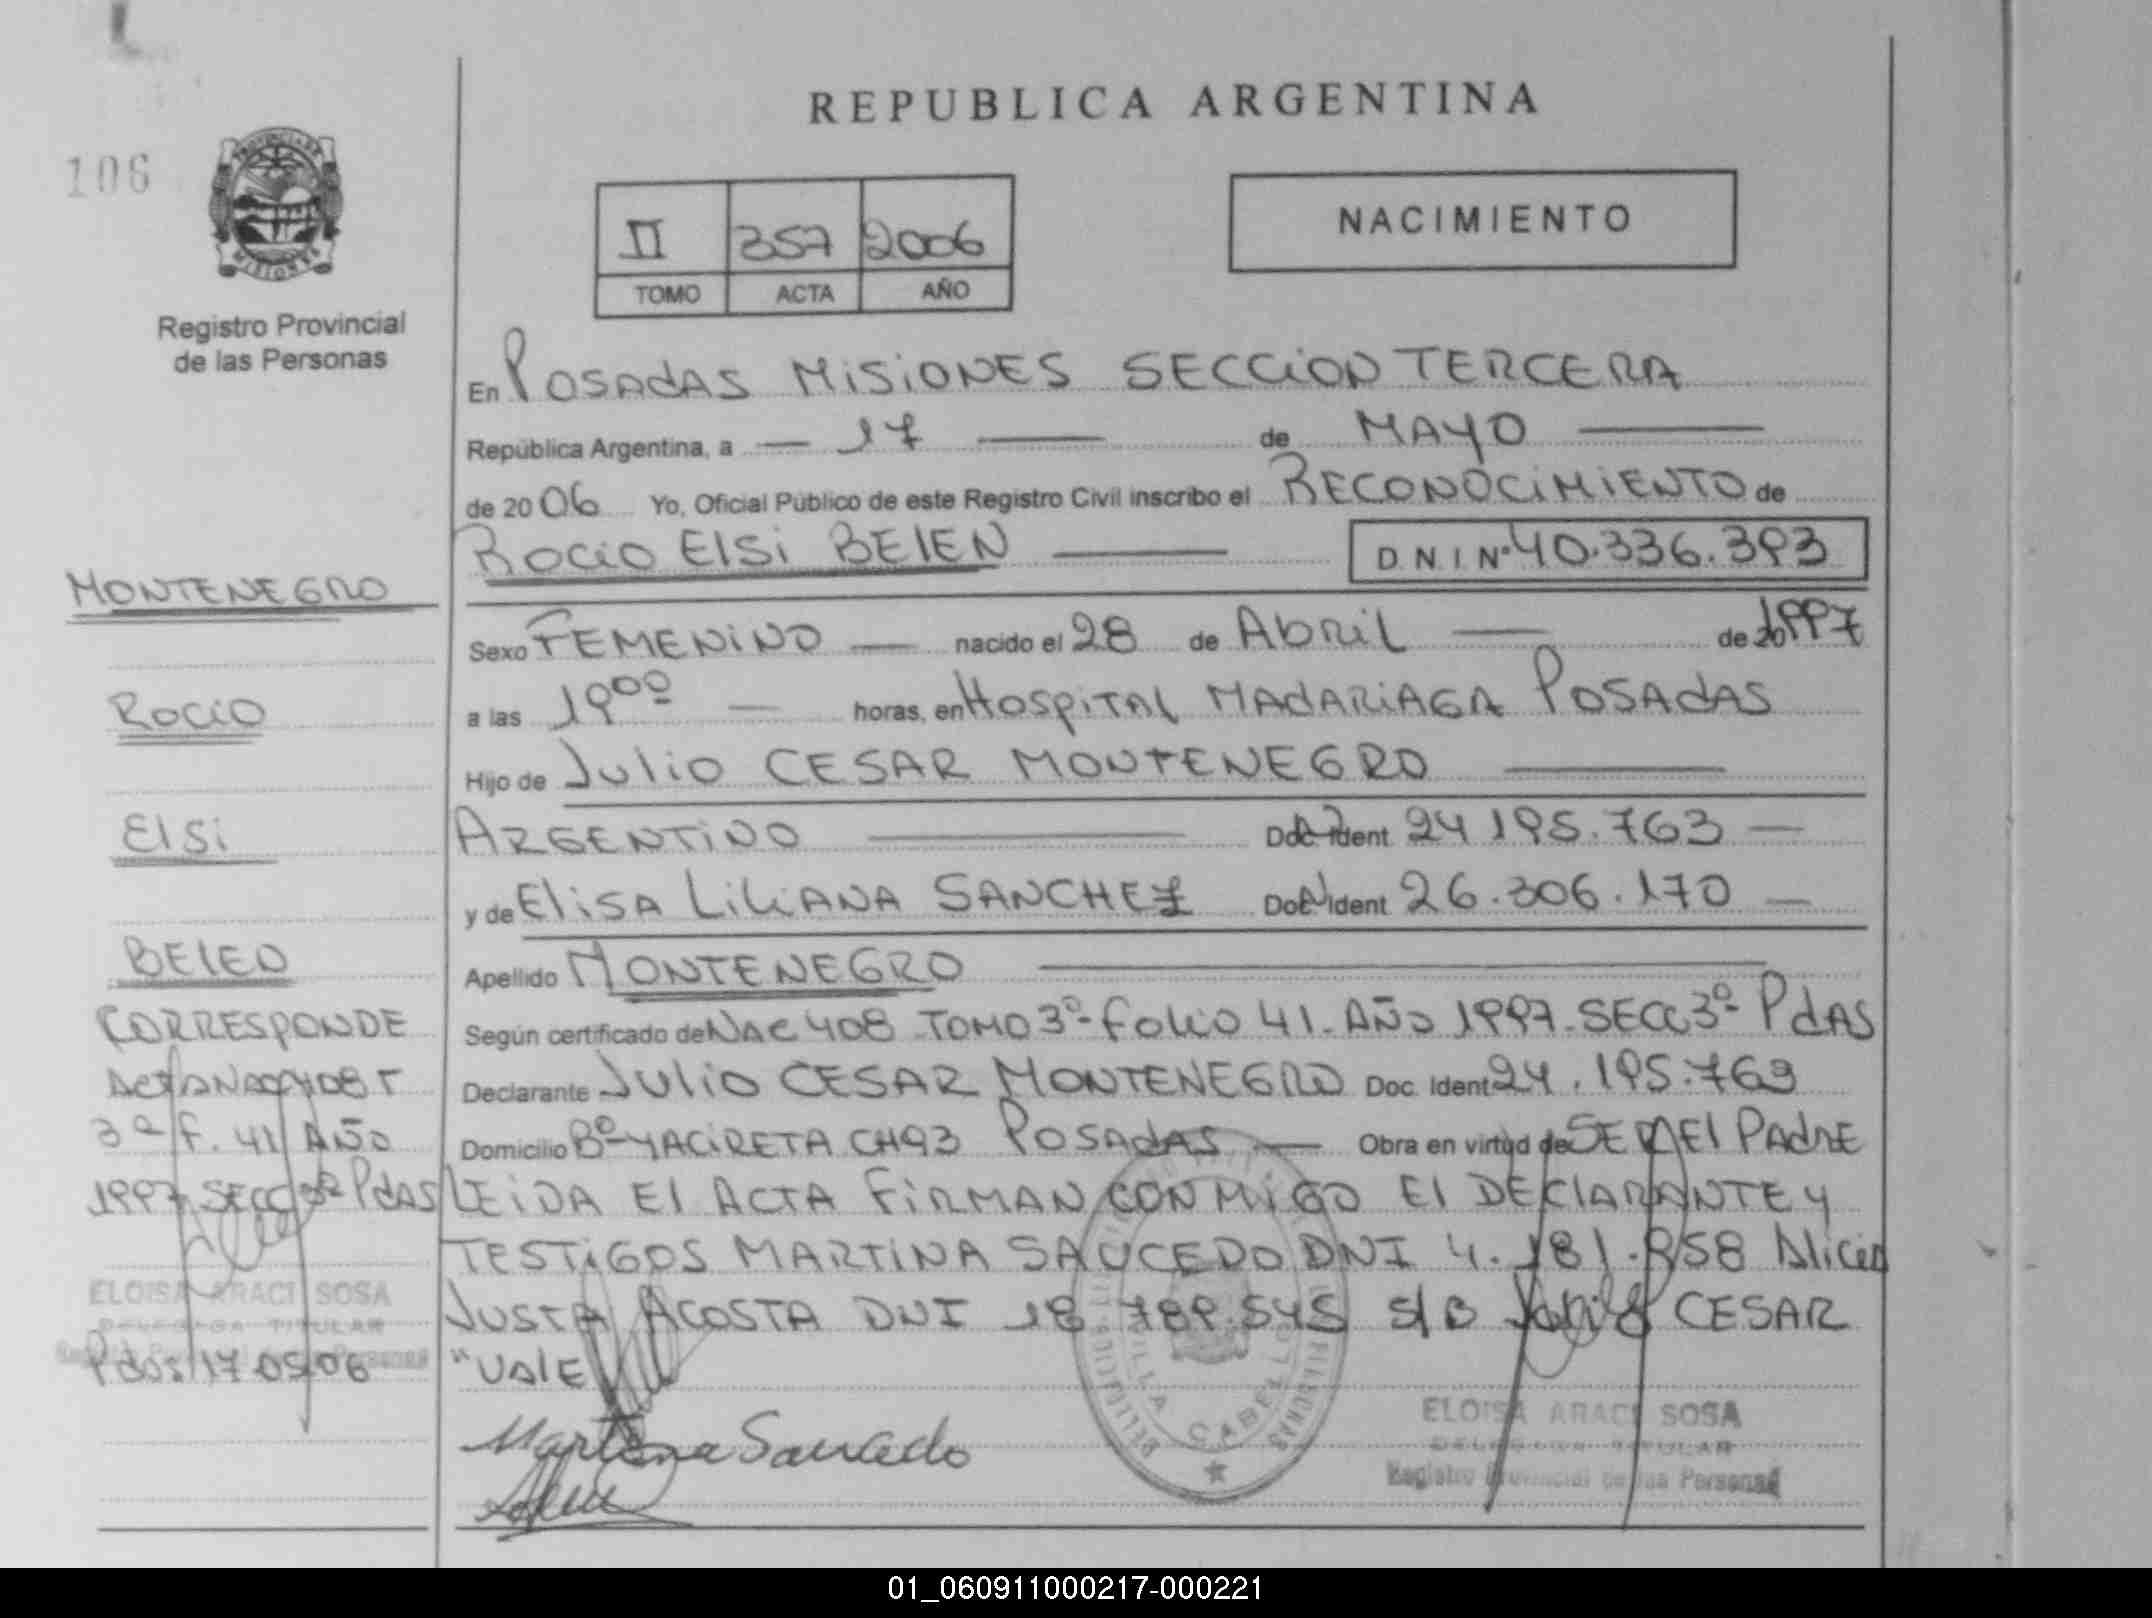 REPUBLICA ARGENTINA
106
PROVINCIA DE
MISIONES
Registro Provincial
de las Personas
II 357 2006
TOMO ACTA AÑO
NACIMIENTO
En POSADAS MISIONES SECCION TERCERA
República Argentina, a — 17 — de MAYO —
de 2006 Yo, Oficial Público de este Registro Civil inscribo el RECONOCIMIENTO de
ROCIO ELSI BELEN — D.N.I.Nº 40.336.393
Sexo FEMENINO — nacido el 28 de Abril — de 20 1997
a las 19⁰⁰ — horas, en HOSPITAL MADARIAGA POSADAS
Hijo de Julio CESAR MONTENEGRO —
ARGENTINO — Doc. Ident 24 195.763 —
y de Elisa LILIANA SANCHEZ Doc. Ident 26.306.170 —
Apellido MONTENEGRO —
Según certificado de NAC 408 TOMO 3º- folio 41. AÑO 1997. SECC 3º- PdAS
Declarante Julio CESAR MONTENEGRO Doc. Ident 24.195.763
Domicilio Bº- YACIRETA CH93 POSADAS — Obra en virtud de SER El PADRE
LEIDA El ACTA FIRMAN CONMIGO El DECLARANTE y
TESTIGOS MARTINA SAUCEDO DNI 4.181.858 Alicia
JUSTA ACOSTA DNI 18 789.545 S/B CESAR
"VALE
Martina Saucedo
VILLA CABELLO
ELOISA ARACI SOSA
DELEGADA TITULAR
Registro Provincial de las Personas
MONTENEGRO
ROCIO
ElSi
BELEN
CORRESPONDE
ACTA NAC 408 T
3º f. 41 AÑO
1997 SECC 3º PdAS
ELOISA ARACI SOSA
DELEGADA TITULAR
Registro Provincial de las Personas
Pdas 17 05 06
01_060911000217-000221